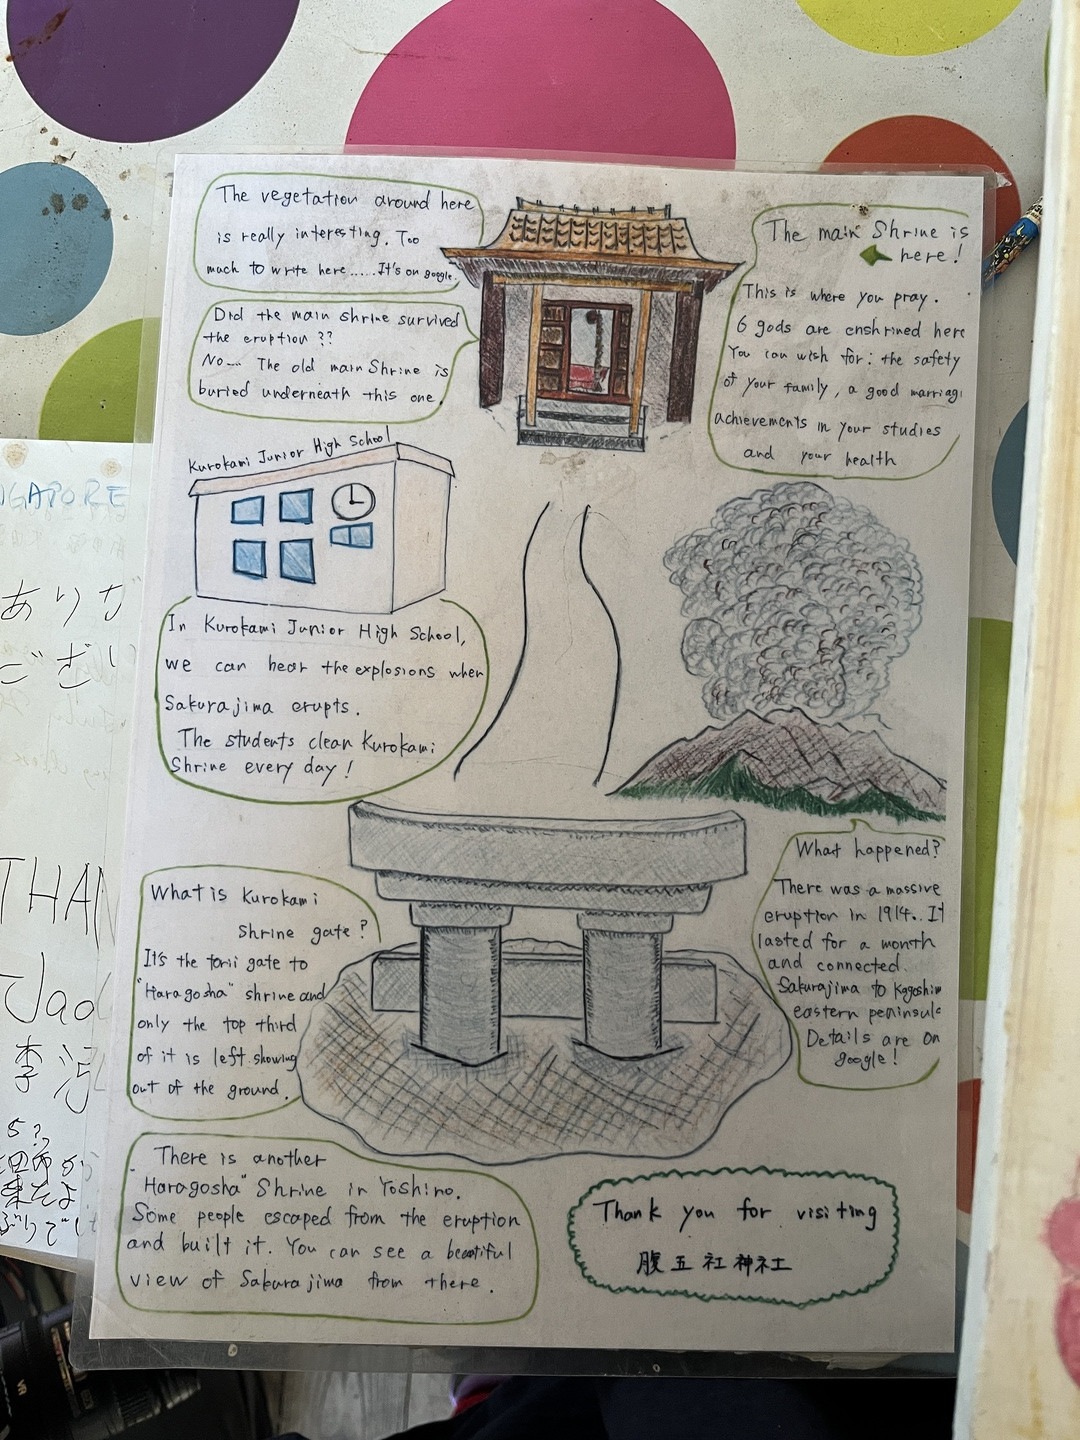 The vegetation around here
is really interesting. Too
much to write here......It's on google.
Did the main shrine survived
the eruption ??
No... The old main Shrine is
buried underneath this one.
The main Shrine is
here!
This is where you pray.
6 gods are enshrined here
You can wish for: the safety
of your family, a good marriag
achievements in your studies
and your health
Kurokami Junior High School
In Kurokami Junior High School,
we can hear the explosions when
Sakurajima erupts.
The students clean Kurokami
Shrine every day!
What is Kurokami
shrine gate?
It's the torii gate to
"Haragosha" shrine and
only the top third
of it is left showing
out of the ground.
What happened?
There was a massive
eruption in 1914. It
lasted for a month
and connected
Sakurajima to Kagoshim
eastern peninsul
Details are on
google!
There is another
Haragosha" Shrine in Yoshino.
Some people escaped from the eruption
and built it. You can see a beautiful
view of Sakurajima from there.
Thank you for visiting
腹五社神社
GAPORE
ありが
ござい
THAN
Jao
李
VR